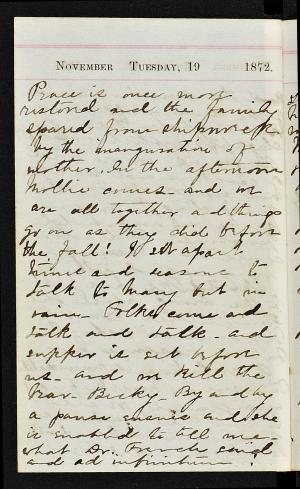 November Tuesday, 19 1872.
Peace is once more
restored and the family
spared from shipwreck
by the inauguration of
mother. In the afternoon
Mollie comes - and we
are all together and things
go on as they did before
the fall! I set apart
times and seasons to
talk to Mary but in
vain - Folks come and
talk and talk - and
supper is set before
us - and we kill the
Bear - Becky - By and by
a pause ensues and she
is enabled to tell me
what Dr. French said
and ad infinitum!